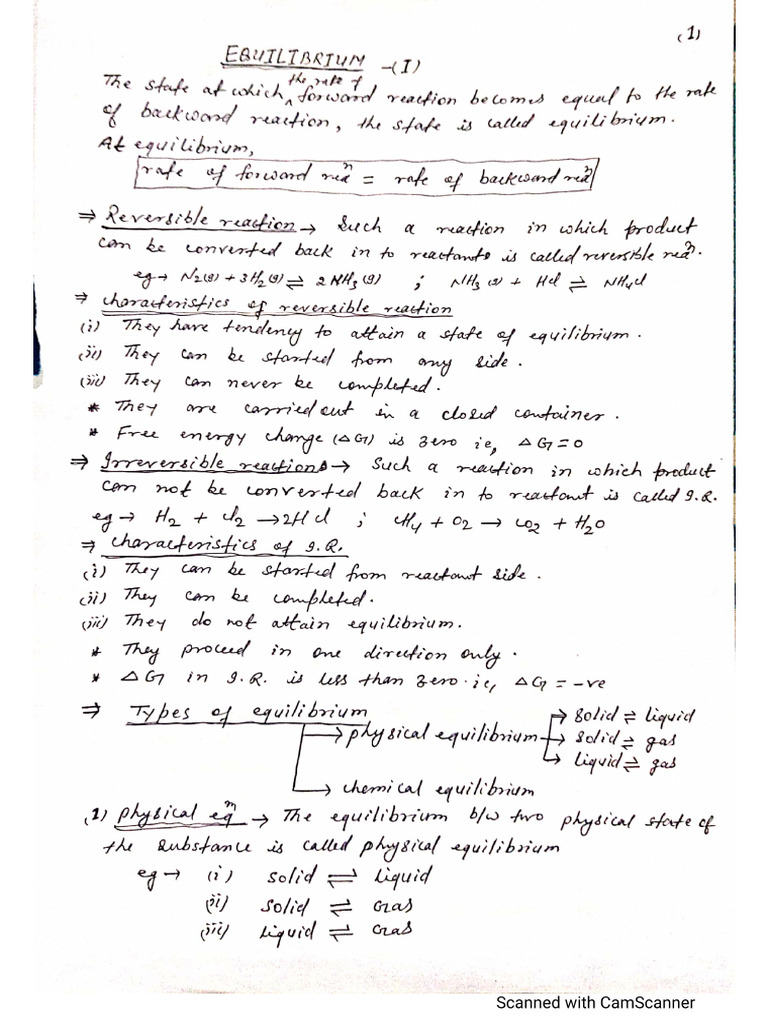 (1)
EQUILIBRIUM -(I)
The state at which the rate of forward reaction becomes equal to the rate
of backward reaction, the state is called equilibrium.
At equilibrium,
rate of forward reaⁿ = rate of backward reaⁿ
⇒ Reversible reaction → Such a reaction in which product
can be converted back in to reactants is called reversible reaⁿ.
eg → N2(g) + 3H2(g) ⇌ 2NH3(g) ; NH3(g) + HCl ⇌ NH4Cl
⇒ Characteristics of reversible reaction
(i) They have tendency to attain a state of equilibrium.
(ii) They can be started from any side.
(iii) They can never be completed.
* They are carried out in a closed container.
* Free energy change (ΔG) is zero ie, ΔG = 0
⇒ Irreversible reactions → Such a reaction in which product
can not be converted back in to reactant is called I.R.
eg → H2 + Cl2 → 2HCl ; CH4 + O2 → CO2 + H2O
⇒ Characteristics of I.R.
(i) They can be started from reactant side.
(ii) They can be completed.
(iii) They do not attain equilibrium.
* They proceed in one direction only.
* ΔG in I.R. is less than zero. ie, ΔG = -ve
⇒ Types of equilibrium
→ physical equilibrium → solid ⇌ liquid
→ solid ⇌ gas
→ liquid ⇌ gas
→ chemical equilibrium
(1) physical eqᵐ → The equilibrium b/w two physical state of
the substance is called physical equilibrium
eg → (i) solid ⇌ liquid
(ii) solid ⇌ Gas
(iii) liquid ⇌ Gas
Scanned with CamScanner